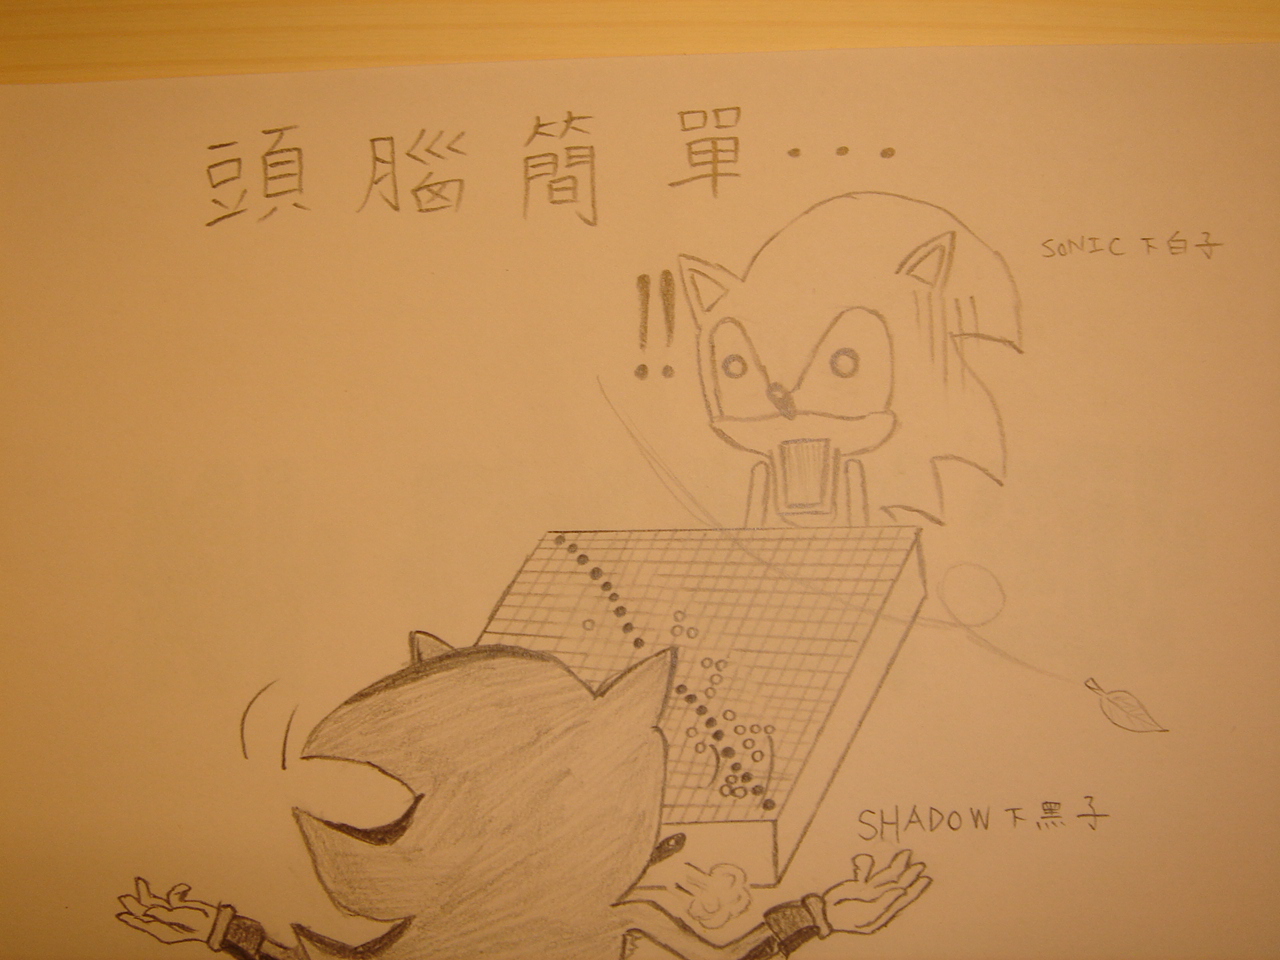 頭腦簡單...
!!
SONIC下白子
SHADOW下黑子